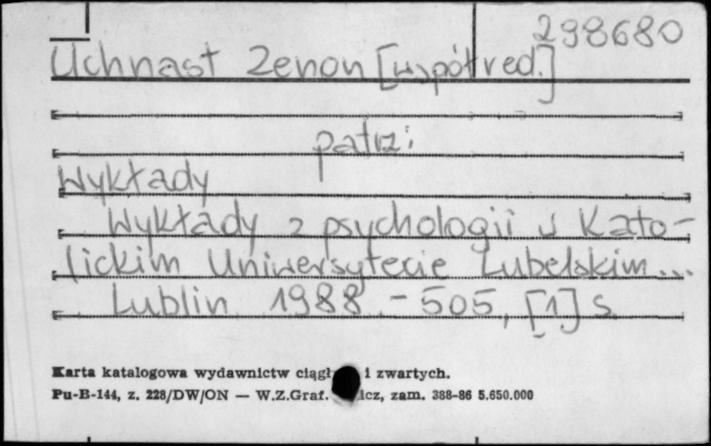 298680
Uchnast Zenon [współred.]
patrz:
Wykłady
Wykłady z psychologii w Kato-
lickim Uniwersytecie Lubelskim...
Lublin 1988. - 505, [1] s.
Karta katalogowa wydawnictw i zwartych.
Pu-B-144, z. 228/DW/ON — W.Z.Graf. zam. 388-86 5.650.000